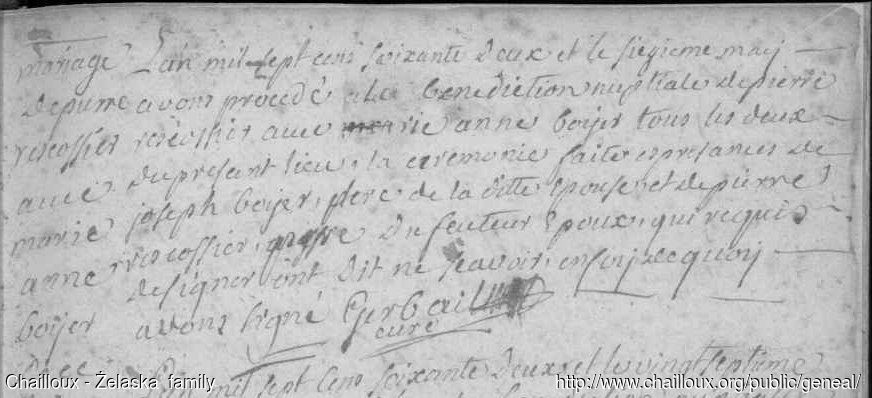 mariage L'an mil sept cens soixante deux et le siezieme maij
de pierre avons procedé a la benediction nuptiale de pierre
rescossier rescossier avec marie anne boijer tous les deux
avec du present lieu, la ceremonie faite es presances de
marie joseph boijer, pere de la ditte epouse, et de pierre
anne rescossier, du futeur epoux, qui requis
boijer de signer ont dit ne scavoir, en foij de quoij
avons signé Gerbail
curé
L'an mil sept cens soixante deux, et le vingt septieme
Chailloux - Żelaska family
http://www.chailloux.org/public/geneal/